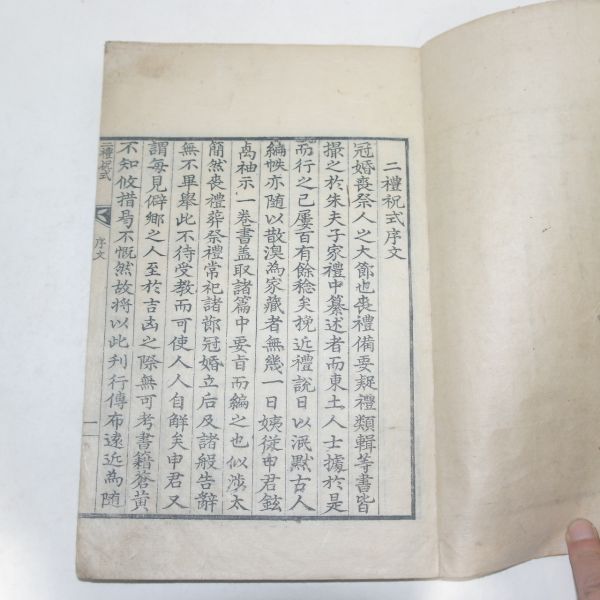 二禮祝式序文
冠婚喪祭人之大節也喪禮備要疑禮類輯等書皆
撮之於朱夫子家禮中纂述者而東土人士據於是
而行之已屢百有餘稔矣挽近禮說日以泯默古人
編帙亦隨以散渙為家藏者無幾一日姨從申君鉉
禼袖示一卷書盖取諸篇中要旨而編之也似涉太
簡然喪禮葬祭禮常祀諸節冠婚立后及諸般告辭
無不畢舉此不待受教而可使人人自解矣申君又
謂每見僻鄉之人至於吉凶之際無可考書籍蒼黃
不知攸措曷不慨然故將以此刊行傳布遠近為隨
二禮祝式
序文
一